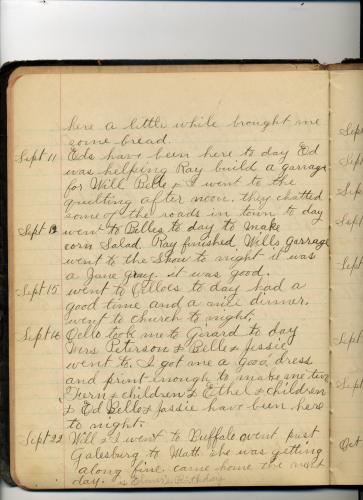 here a little while brought me
some bread.
Sept 11 Eds have been here to day Ed
was helping Ray build a garrage
for Will Belle & I went to the
quilting after noon. they chatted
some of the roads in town to day
Sept 13 went to Belles to day to make
corn Salad. Ray finished Wills garrage
went to the Show to night it was
a Jane gray. it was good.
Sept 15 went to Oclloes to day had a
good time and a nice dinner.
went to church to night.
Sept 16 Oello took me to Girard to day
Mrs Peterson & Belle & Jessie
went to. I got me a good dress
and print enough to make me two
Fern & children & Ethel & children
& Ed Belle & Jassie have been here
to night.
Sept 22 Will & I went to Buffalo went past
Galesburg to Matt she was getting
along fine came home the next
day. is Elmer's Birthday
Sept
Sept
Sept
Sept
Sept
Sept
Sept
Oct